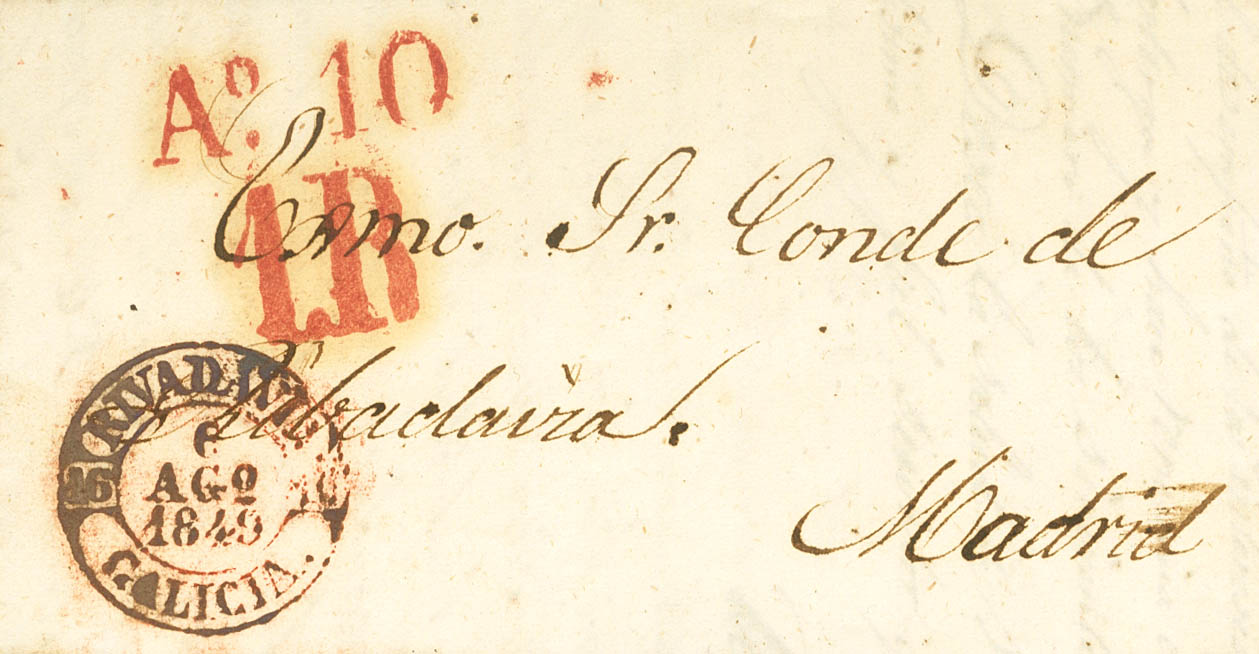 Aº. 10
1.R
Exmo. Sr. Conde de
Ribadavia.
Madrid
RIVADAVIA
16
AGº
1849
GALICIA.